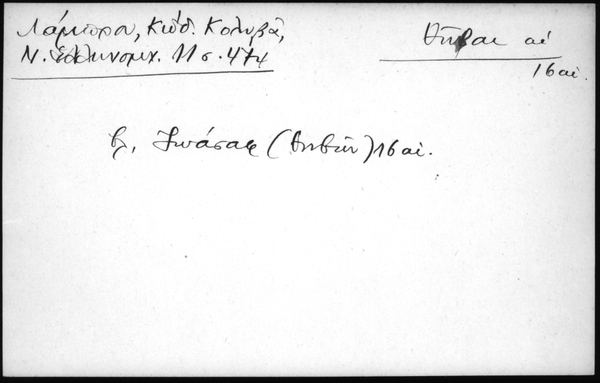 Λάμπρου, Κώδ. Κολυβᾶ,
Ν. Ἑλληνομν. 11 σ. 474
Θῆβαι αἱ
16 αἰ.
βλ. Ἰωάσαφ (Θηβῶν) 16 αἰ.